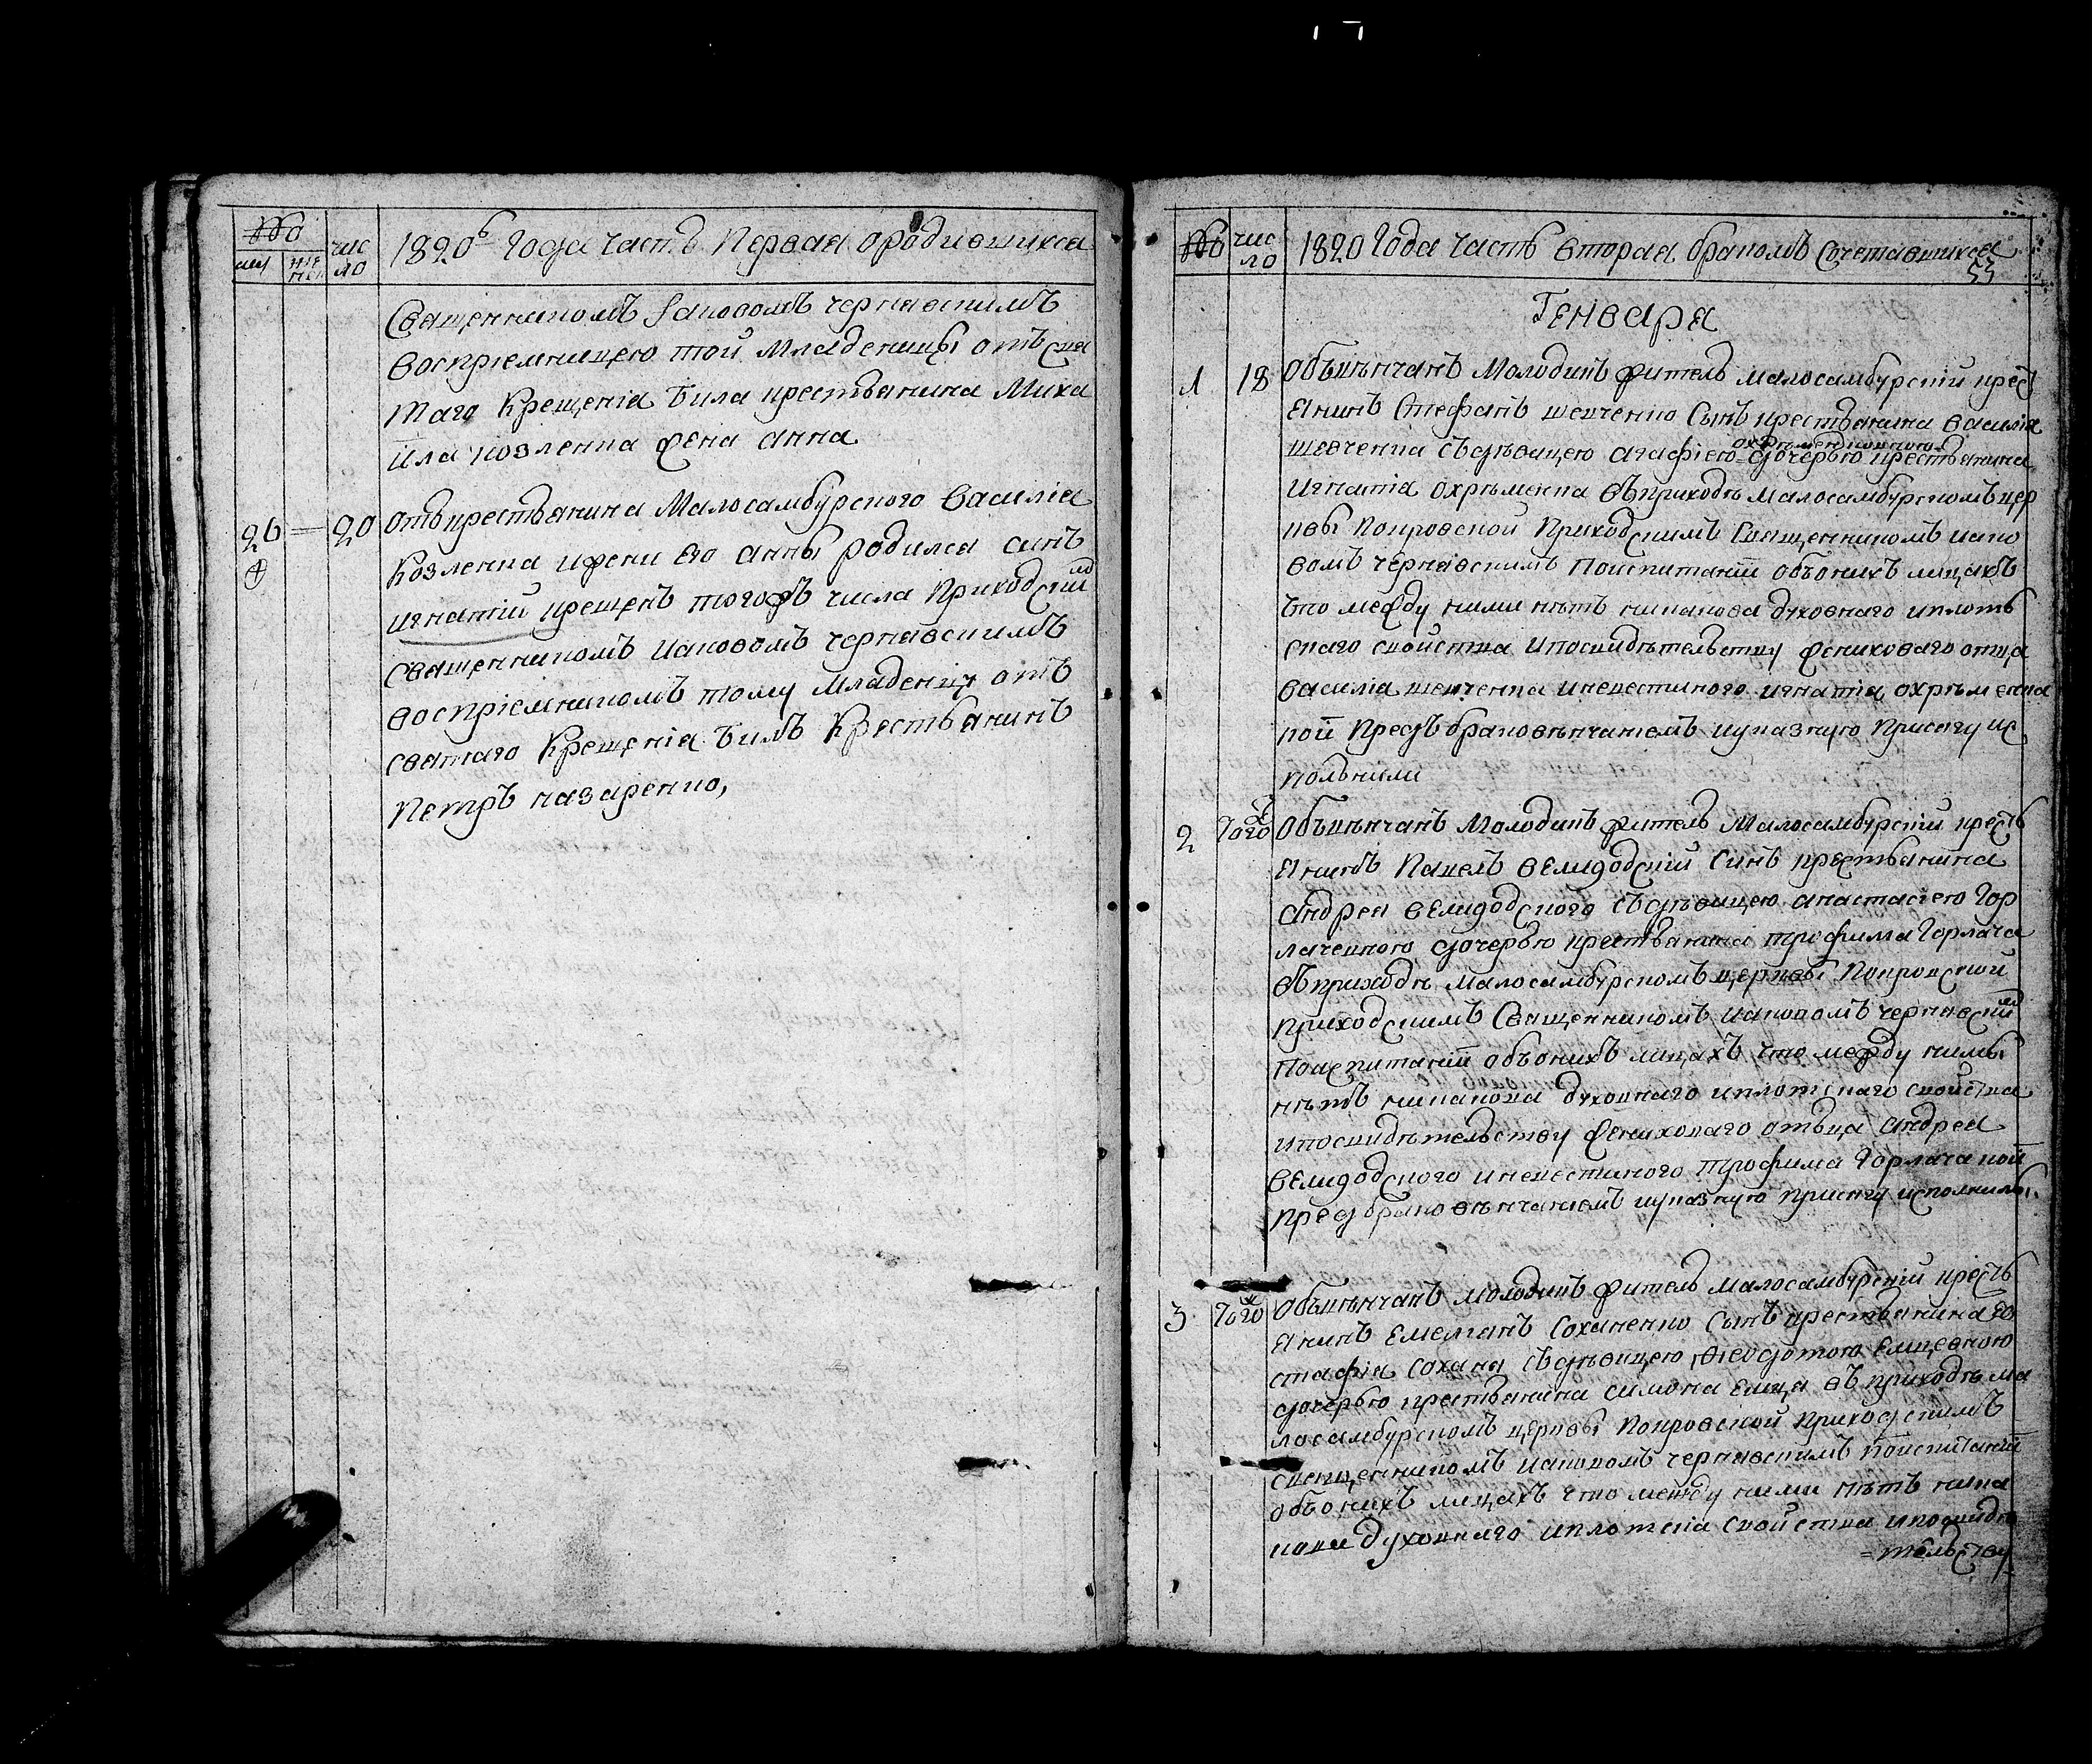 №
муж жен чис ло
1820го Года Часть Первая о родившихся
Священником Іаковомъ Чернявскимъ
воспріемницею той младеницы отъ свя
таго Крещенія била крестьянина Миха
йла козленка жена анна
26 — 20 отъ крестьянина Малосамбурского Василія
Козленка и жени его анны родился синъ
игнатій крещенъ тогожъ числа Приходскимъ
священникомъ Иаковомъ чернявскимъ
воспріемникомъ тому младенцу отъ
святаго Крещенія билъ Крестьянинъ
Петръ назаренко,
№ чис ло
1820 Года Часть вторая бракомъ Сочетавшихся
53
Генваря
1 18 Обвѣнчанъ Молодикъ житель малосамбурскій крест
янинъ Стефанъ шевченко Сынъ крестьянина василія
охрѣменковною
шевченка съ дѣвицею агафіею дочерью крестьянина
игнатія охрѣменка въ приходѣ малосамбурскомъ цер
кви Покровской Приходскимъ Священникомъ иако
вомъ чернявскимъ По испитаніи объ онихъ лицахъ
что между ними нѣтъ никакова духовнаго и плоть
скаго свойства и по свидѣтельству жениховаго отца
василія шевченка и невестиного игнатія охрѣменка
кои Предъ браковѣнчаніемъ и указную присягу ис
полнили
2 Того ж Обвѣнчанъ Молодикъ житель Малосамбурскій кресть
янинъ Павелъ велигодскій Синъ крестьянина
Андрея велигодского съ дѣвицею анастасіею Гор
лачевною дочерью крестьянина трофима Горлача
въ приходѣ малосамбурскомъ церкви Покровской
приходскимъ Священникомъ иаковомъ чернявскимъ
По испитаніи объ онихъ лицахъ что между нимы
нѣтъ никакова духовнаго и плотскаго свойства
и по свидѣтельству жениховаго отьца андрея
велигодского и невестиного трофима Горлача кои
предъ браковѣнчаніемъ и указную присягу исполнилы.
3 Того ж Обвѣнчанъ молодикъ житель малосамбурскій кресть
янинъ Емелианъ Соханенко Сынъ крестьянина ев
стафія Сохана съ дѣвицею Феодотою Емцевною
дочерью крестьянина симона Емца въ приходѣ ма
лосамбурскомъ церкви Покровской приходскимъ
священникомъ иаковомъ чернявскимъ По испитаніи
объ онихъ лицахъ что между ними нѣтъ ника
кова духовнаго и плотскіа свойства и по свидѣ
=тельству